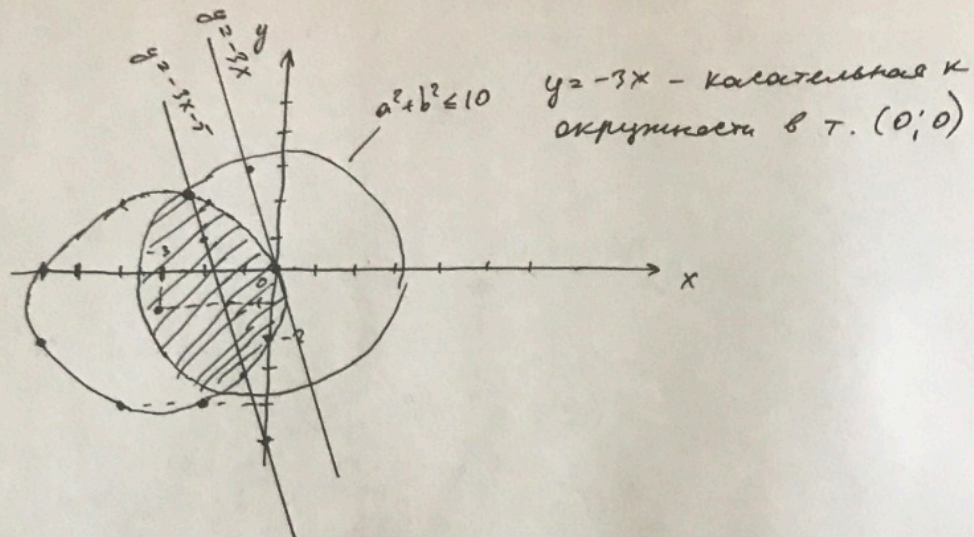 y = -3x-5
y = -3x
y
a²+b² ≤ 10
y = -3x - касательная к
окружности в т. (0; 0)
-3
0
x
-1
-2